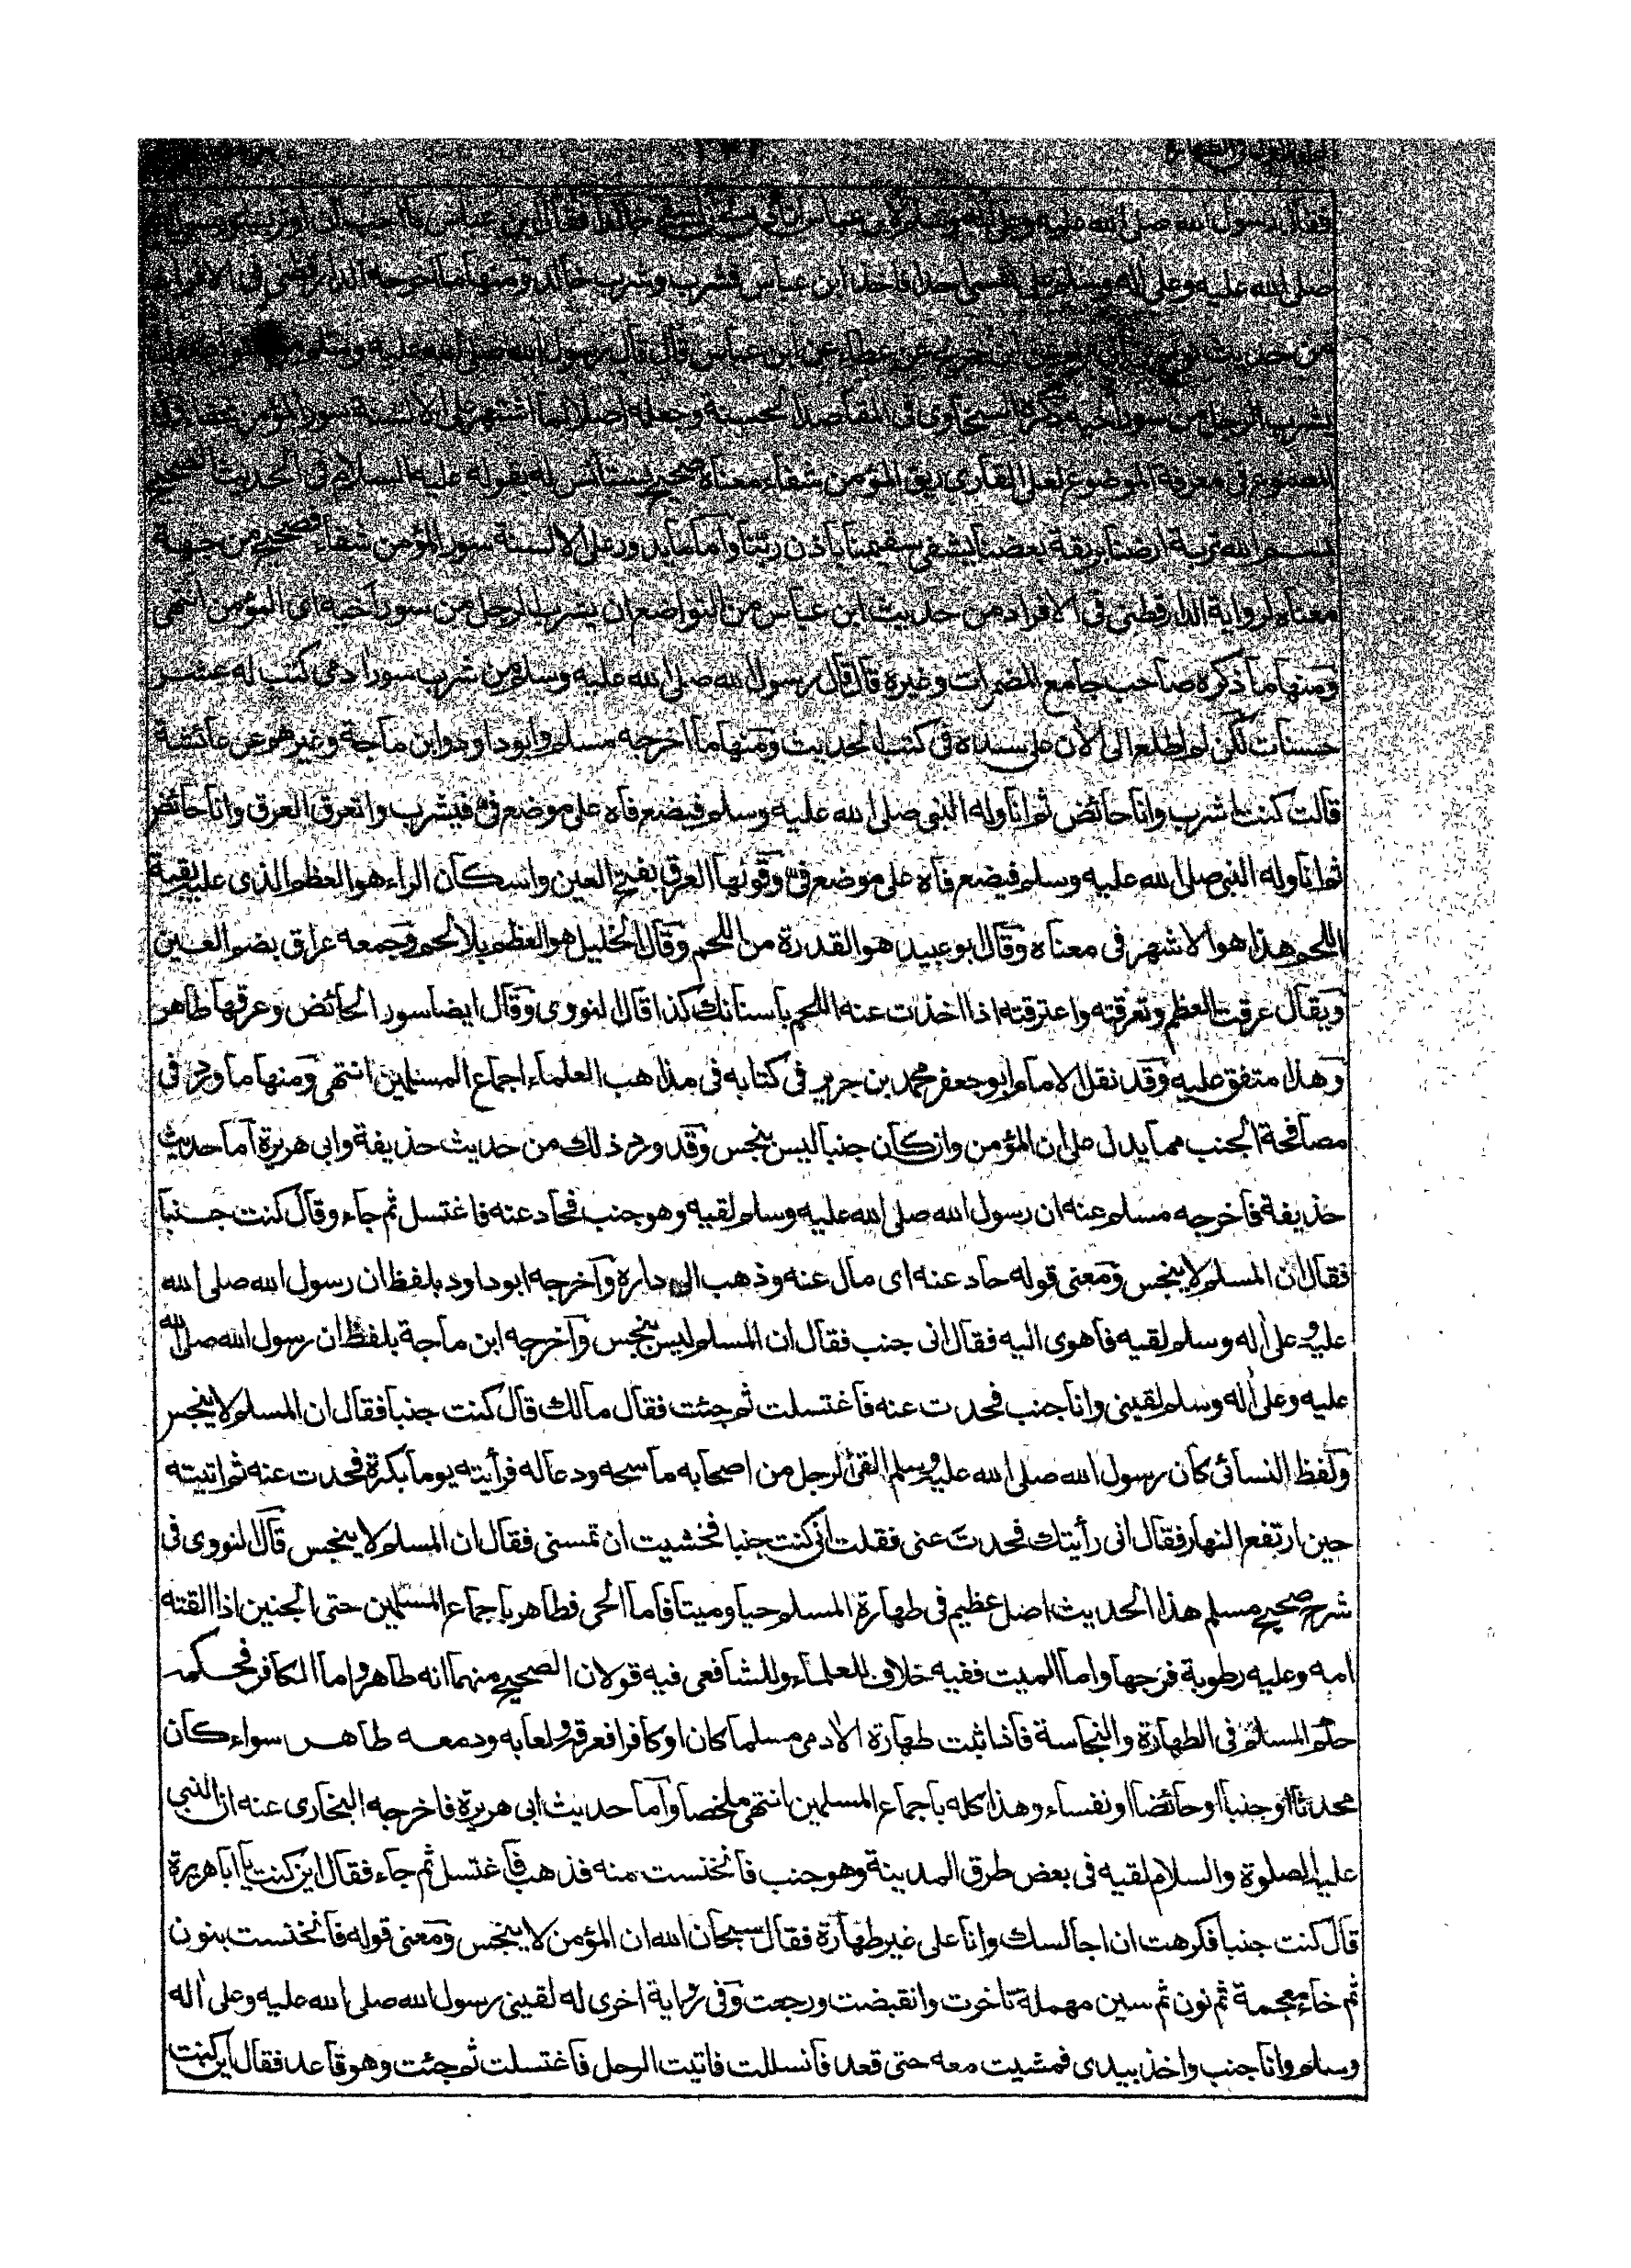 فقال رسول الله صلى الله عليه وعلى اله وسلم لابن عباس خالدا فقال ابن عباس ما احب ان اوثر بسور رسول الله
صلى الله عليه وعلى اله وسلم على نفسى احدا فاخذ ابن عباس فشرب وشرب خالد ومنها ما اخرجه الدارقطنى فى الافراد
من حديث ابن جريج عن عطاء عن ابن عباس قال قال رسول الله صلى الله عليه وسلم من التواضع ان
يشرب الرجل من سور اخيه ذكره السخاوى فى المقاصد الحسنة وجعله اصلا لما اشتهر على الالسنة سور المؤمن شفاء وفى
المصنوع فى معرفة الموضوع لعلى القارى ريق المؤمن شفاء معناه صحيح ليستأنس له بقوله عليه السلام فى الحديث الصحيح
بسم الله تربة ارضنا بريقة بعضنا يشفى سقيمنا باذن ربنا واما ما يدور على الالسنة سور المؤمن شفاء فصحيح من جهة
معناه لرواية الدارقطنى فى الافراد من حديث ابن عباس من التواضع ان يشرب الرجل من سور اخيه اى المؤمن انتهى
ومنها ما ذكره صاحب جامع المضمرات وغيره قال قال رسول الله صلى الله عليه وسلم من شرب سور ادمى كتب له عشر
حسنات لكن لم اطلع الى الان على سنده فى كتب الحديث ومنها ما اخرجه مسلم وابو داود وابن ماجة وغيرهم عن عائشة
قالت كنت اشرب وانا حائض ثم اناوله النبى صلى الله عليه وسلم فيضع فاه على موضع فى فيشرب واتعرق العرق وانا حائض
ثم اناوله النبى صلى الله عليه وسلم فيضع فاه على موضع فى وقولها العرق بفتح العين واسكان الراء هو العظم الذى عليه بقية
اللحم هذا هو الاشهر فى معناه وقال ابو عبيد هو القدرة من اللحم وقال الخليل هو العظم بلا لحم وجمعه عراق بضم العين
ويقال عرقت العظم وتعرقته واعترقته اذا اخذت عنه اللحم باسنانك كذا قال النووى وقال ايضا سور الحائض وعرقها طاهر
وهذا متفق عليه وقد نقل الامام ابو جعفر محمد بن جرير فى كتابه فى مذاهب العلماء اجماع المسلمين انتهى ومنها ما ورد فى
مصافحة الجنب مما يدل على ان المؤمن وان كان جنبا ليس بنجس وقد ورد ذلك من حديث حذيفة وابى هريرة اما حديث
حذيفة فاخرجه مسلم عنه ان رسول الله صلى الله عليه وسلم لقيه وهو جنب فحاد عنه فاغتسل ثم جاء وقال كنت جنبا
فقال ان المسلم لا ينجس ومعنى قوله حاد عنه اى مال عنه وذهب الى داره واخرجه ابو داود بلفظ ان رسول الله صلى الله
عليه وعلى اله وسلم لقيه فاهوى اليه فقال انى جنب فقال ان المسلم ليس بنجس واخرجه ابن ماجة بلفظ ان رسول الله صلى الله
عليه وعلى اله وسلم لقينى وانا جنب فحدت عنه فاغتسلت ثم جئت فقال مالك قال كنت جنبا فقال ان المسلم لا ينجس
ولفظ النسائى كان رسول الله صلى الله عليه وسلم القى الرجل من اصحابه ماسحه ودعا له فرأيته يوما بكرة فحدت عنه ثم اتيته
حين ارتفع النهار فقال انى رأيتك فحدت عنى فقلت انى كنت جنبا فخشيت ان تمسنى فقال ان المسلم لا ينجس قال النووى فى
شرح صحيح مسلم هذا الحديث اصل عظيم فى طهارة المسلم حيا وميتا فاما الحى فطاهر باجماع المسلمين حتى الجنين اذا القته
امه وعليه رطوبة فرجها واما الميت ففيه خلاف للعلماء وللشافعى فيه قولان الصحيح منهما انه طاهر واما الكافر فحكمه
حكم المسلم فى الطهارة والنجاسة فاذا ثبت طهارة الادمى مسلما كان او كافرا فعرقه ولعابه ودمعه طاهر سواء كان
محدثا او جنبا او حائضا او نفساء وهذا كله باجماع المسلمين انتهى ملخصا واما حديث ابى هريرة فاخرجه البخارى عنه ان النبى
عليه الصلوة والسلام لقيه فى بعض طرق المدينة وهو جنب فانخنست منه فذهب فاغتسل ثم جاء فقال اين كنت يا ابا هريرة
قال كنت جنبا فكرهت ان اجالسك وانا على غير طهارة فقال سبحان الله ان المؤمن لا ينجس ومعنى قوله فانخنست بنون
ثم خاء معجمة ثم نون ثم سين مهملة تاخرت وانقبضت ورجعت وفى رواية اخرى له لقينى رسول الله صلى الله عليه وعلى اله
وسلم وانا جنب واخذ بيدى فمشيت معه حتى قعد فانسللت فاتيت الرحل فاغتسلت ثم جئت وهو قاعد فقال اين كنت